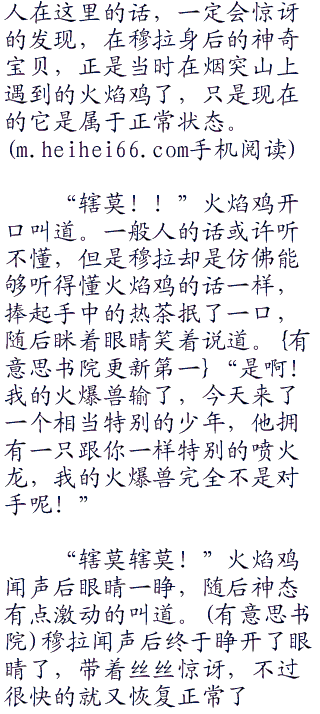 人在这里的话，一定会惊讶
的发现，在穆拉身后的神奇
宝贝，正是当时在烟突山上
遇到的火焰鸡了，只是现在
的它是属于正常状态。
(m.heihei66.com手机阅读)
“辖莫！！”火焰鸡开
口叫道。一般人的话或许听
不懂，但是穆拉却是仿佛能
够听得懂火焰鸡的话一样，
捧起手中的热茶抿了一口，
随后眯着眼睛笑着说道。{有
意思书院更新第一}“是啊！
我的火爆兽输了，今天来了
一个相当特别的少年，他拥
有一只跟你一样特别的喷火
龙，我的火爆兽完全不是对
手呢！”
“辖莫辖莫！”火焰鸡
闻声后眼睛一睁，随后神态
有点激动的叫道。(有意思书
院)穆拉闻声后终于睁开了眼
睛了，带着丝丝惊讶，不过
很快的就又恢复正常了